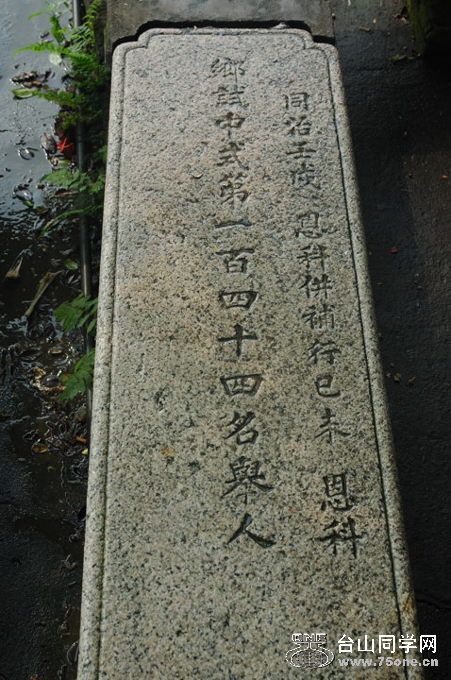 同治壬戌恩科併補行己未恩科
鄉試中式第一百四十四名舉人
台山同学网
www.75one.cn